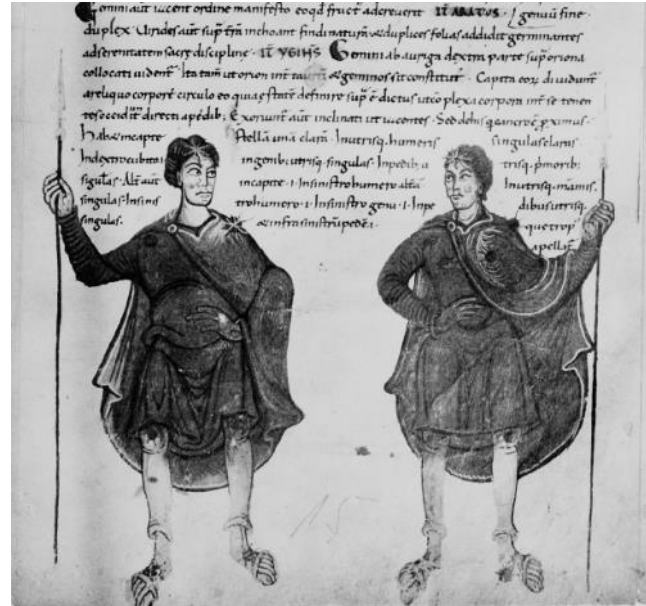 Gemini aut iuccent ordine manifesto eo qd fruct adereverit IT ARATOS I geniuu fine
du plex Virides aut sup tra inchoant findi natura & duplices folias addidit germinantes
ad serenitatem sacre discipline IT YGIHS Gemini ab auriga dextra parte sup oriona
collocati vident Ita tam ut orion int & geminos sit constitut Capita eoz dividunt
a reliquo corpore circulo eo qui definire sup e dictus ut coplexa corpora int se tenen
tes occidit directi apedib; Exoriunt aut inclinati ut iacentes Sed dehis q eancroe p ximus
Habae incapte Stella una clara In utrisq; humeris singulas claras
Indextro cubito ingenib; utrisq singulas Inpedib; a trisq; pmorib;
sigulas Alt aut incapite I In sinistro humero In utrisq; mamis
singulas In sinis tro humero I In sinistro genu I Inpe dibus utrisq
singulas & infra sinistru pede I que trop
apellat